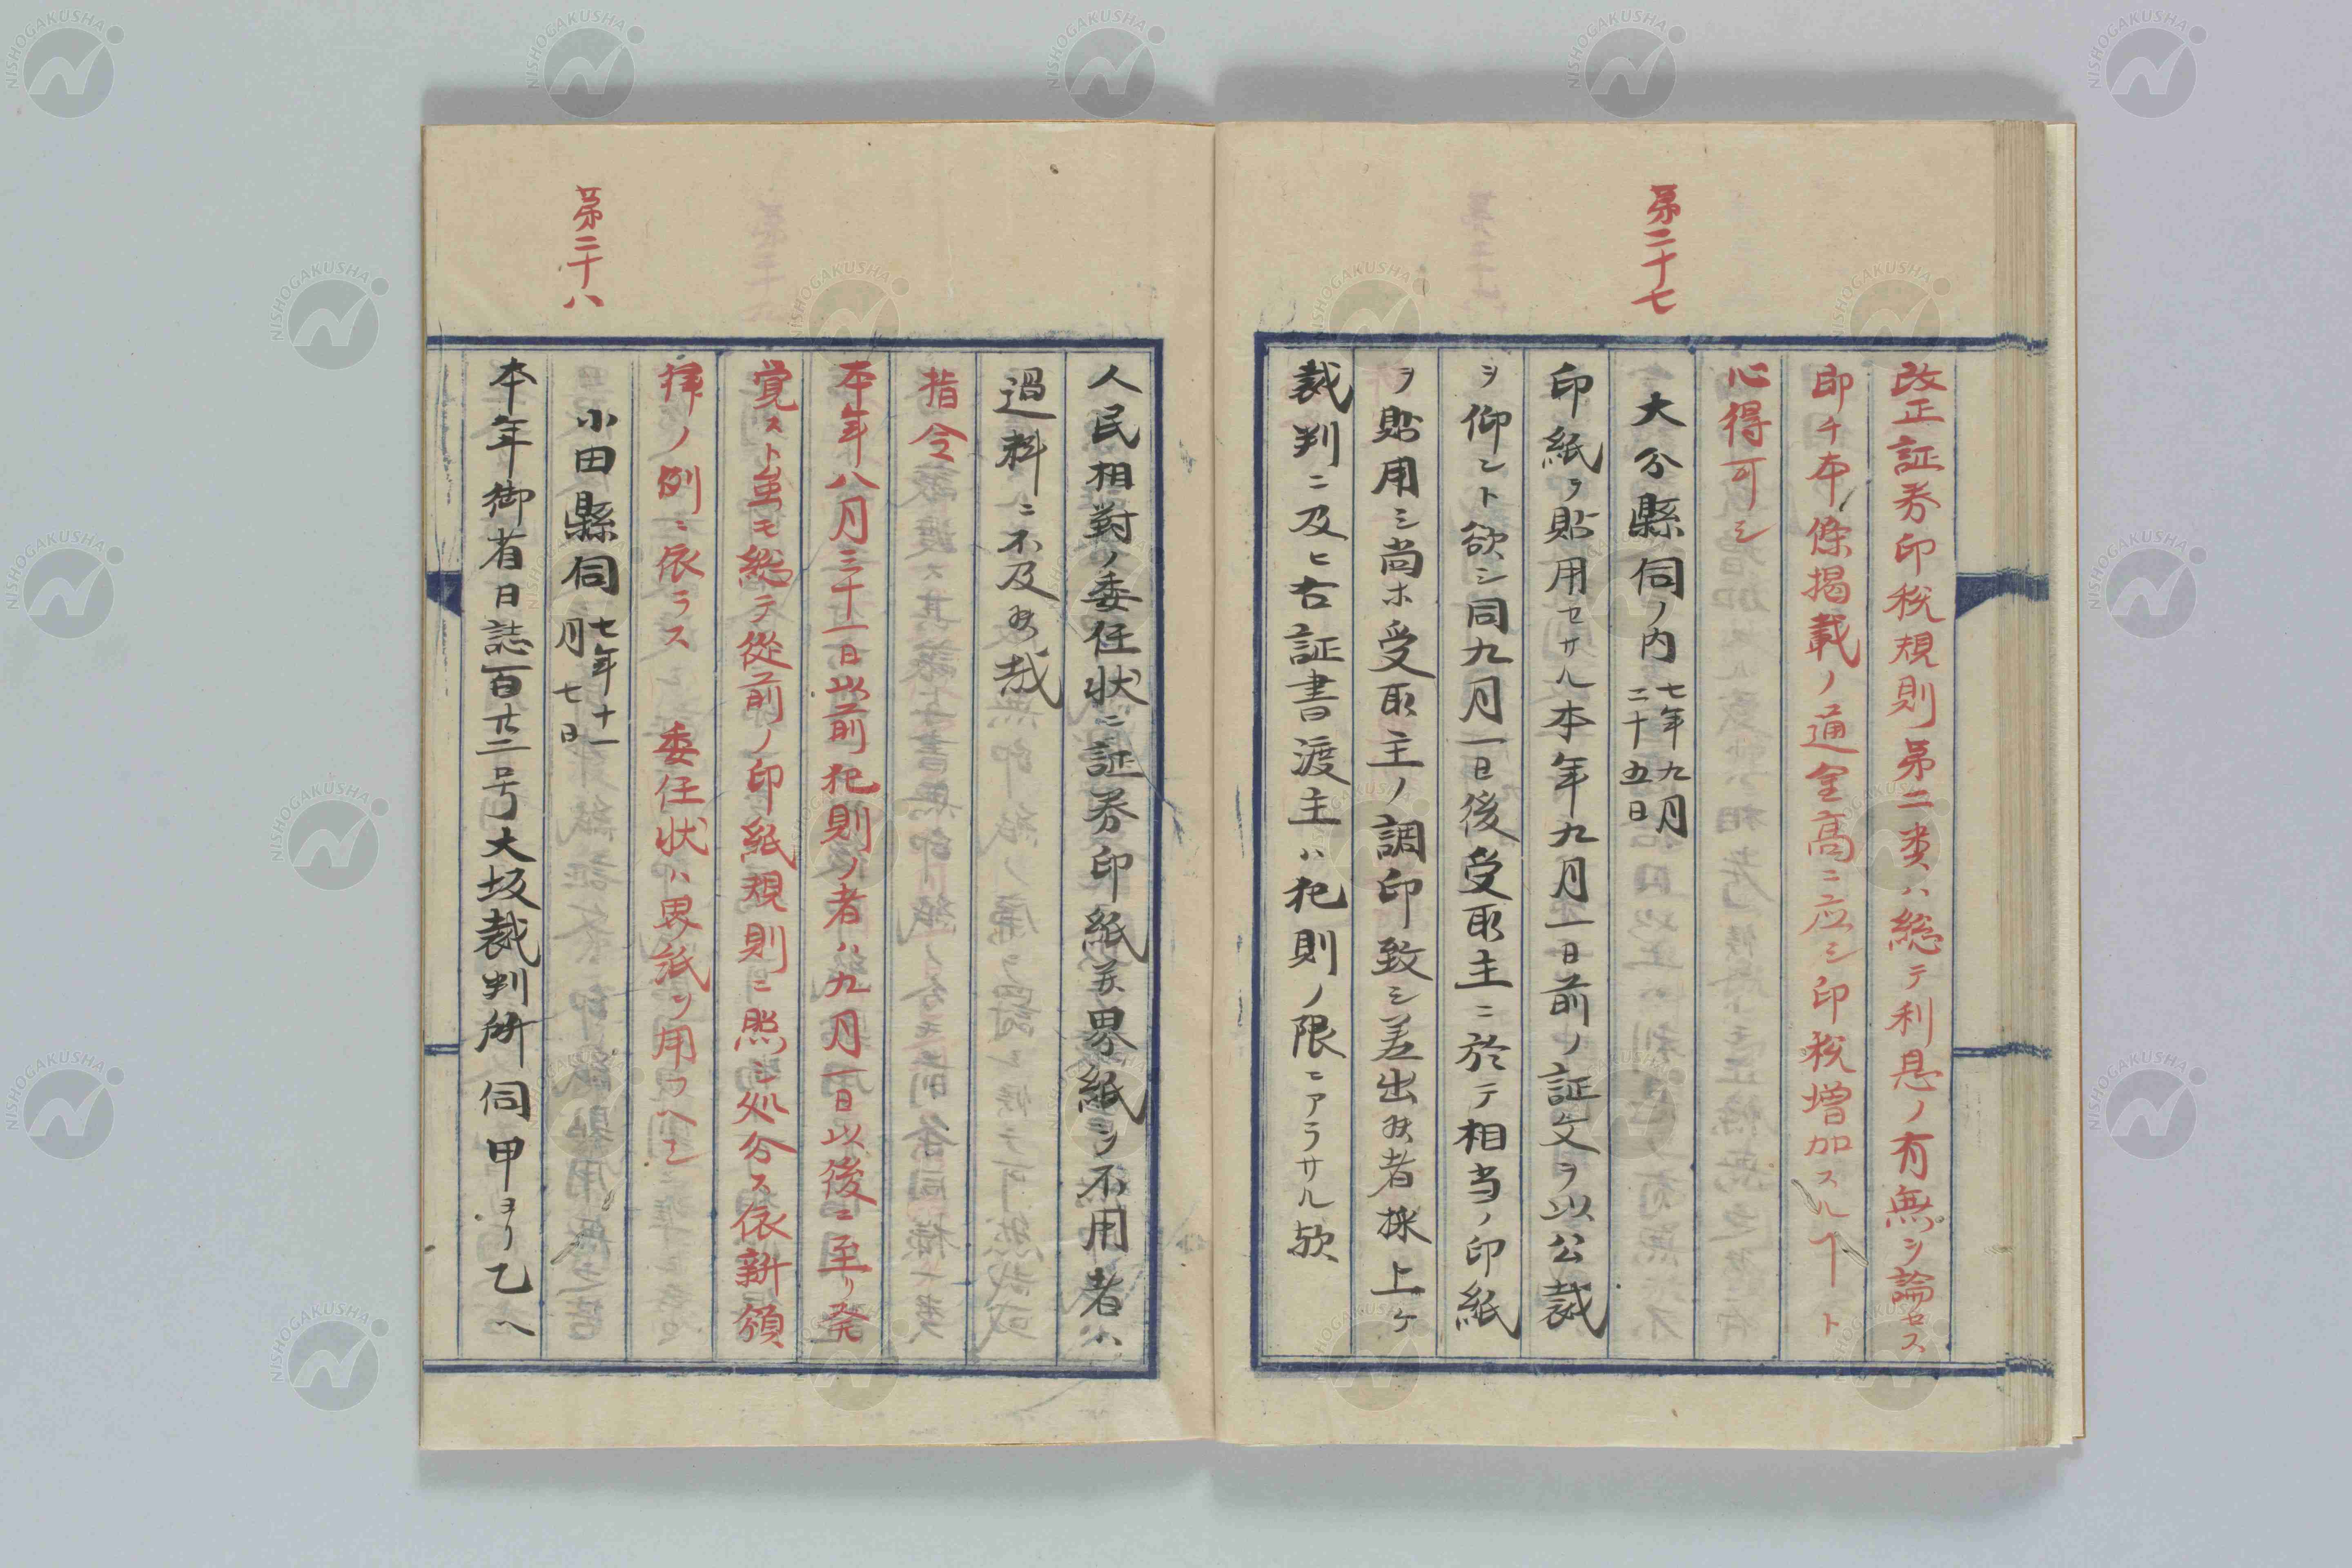 改正証券印税規則第二类ハ総テ利息ノ有無ヲ論セス
即チ本條掲載ノ通金高ニ応シ印税増加スルヿト
心得可シ
第二十七
大分縣伺ノ内 七年九月二十五日
印紙ヲ貼用セサル本年九月一日前ノ証文ヲ以公裁
ヲ仰ント欲シ同九月一日後受取主ニ於テ相当ノ印紙
ヲ貼用シ尚ホ受取主ノ調印致シ差出候者採上ケ
裁判ニ及ヒ右証書渡主ハ犯則ノ限ニアラサル欤
人民相對ノ委任状ニ証券印紙并界紙ヲ不用者ハ
過料ニ不及候哉
指令
本年八月三十一日以前犯則ノ者ハ九月一日以後ニ至リ発
覚スト虽モ総テ從前ノ印紙規則ニ照シ処分ス依新頒
律ノ例ニ依ラス 委任状ハ界紙ヲ用フヘシ
第二十八
小田縣伺 七年十一月七日
本年御省日誌百廿二号大坂裁判所伺甲ヨリ乙ヘ
NISHOGAKUSHA